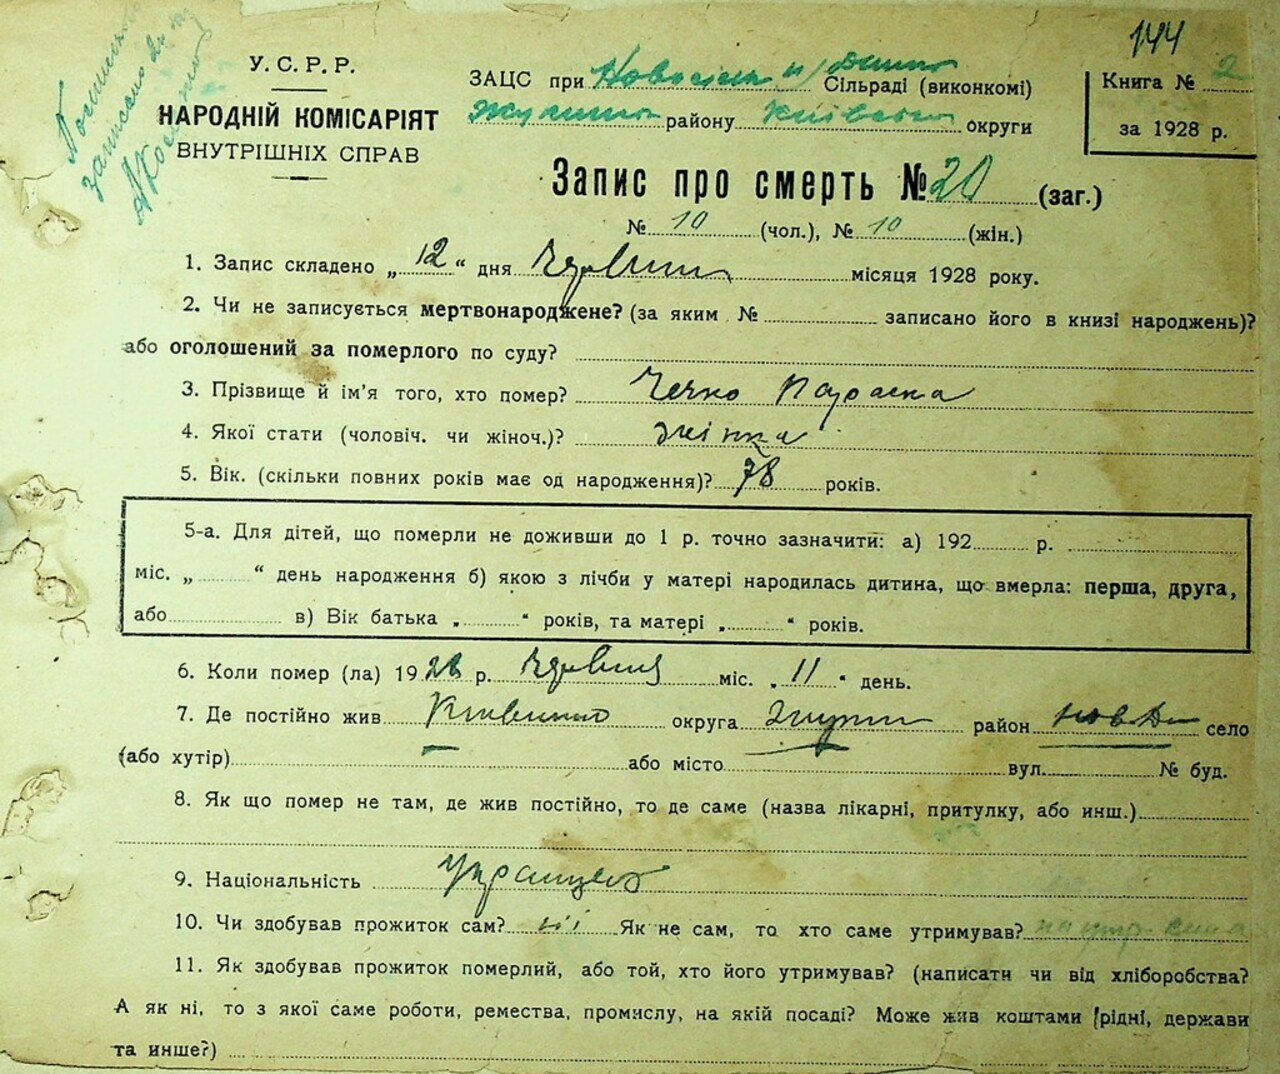 144
У.С.Р.Р.
НАРОДНІЙ КОМІСАРІЯТ
ВНУТРІШНІХ СПРАВ
ЗАЦС при Сільраді (виконкомі)
району Київської округи
Книга № 2
за 1928 р.
Запис про смерть № 20 (заг.)
№ 10 (чол.), № 10 (жін.)
1. Запис складено „12“ дня місяця 1928 року.
2. Чи не записується мертвонароджене? (за яким № записано його в книзі народжень)?
або оголошений за померлого по суду?
3. Прізвище й ім'я того, хто помер? Параска
4. Якої стати (чоловіч. чи жіноч.)? жінка
5. Вік. (скільки повних років має од народження)? 78 років.
5-а. Для дітей, що померли не доживши до 1 р. точно зазначити: а) 192 р.
міс. „ “ день народження б) якою з лічби у матері народилась дитина, що вмерла: перша, друга,
або в) Вік батька „ “ років, та матері „ “ років.
6. Коли помер (ла) 1928 р. міс. „11“ день.
7. Де постійно жив округа район село
(або хутір) або місто вул. № буд.
8. Як що помер не там, де жив постійно, то де саме (назва лікарні, притулку, або инш.)
9. Національність
10. Чи здобував прожиток сам? ні Як не сам, то хто саме утримував?
11. Як здобував прожиток померлий, або той, хто його утримував? (написати чи від хліборобства?
А як ні, то з якої саме роботи, ремества, промислу, на якій посаді? Може жив коштами (рідні, держави
та инше?)